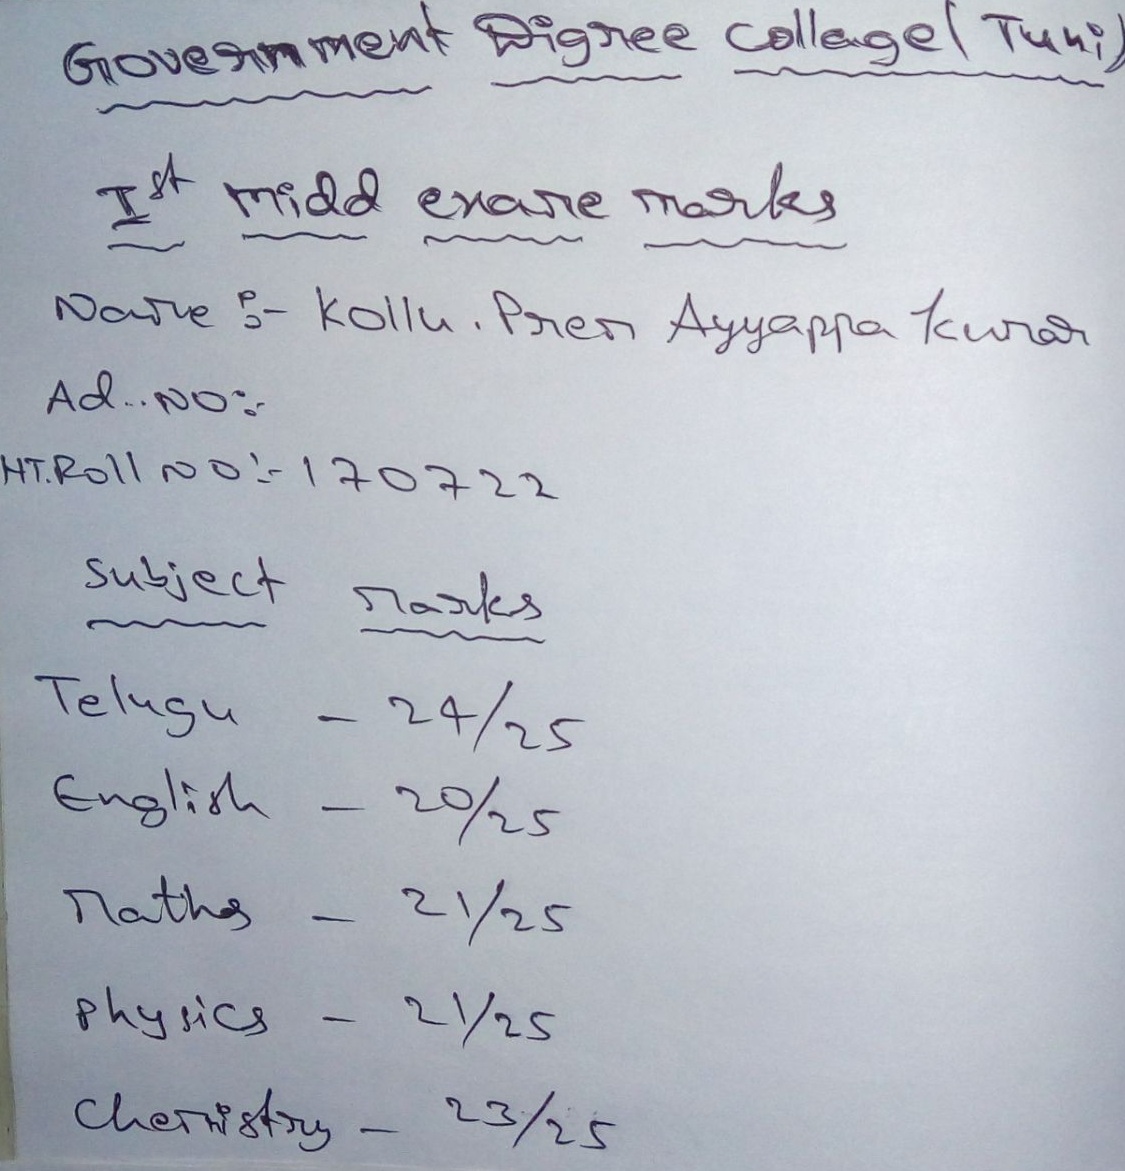 Government Digree collage (Tuni)
Ist midd exame marks
Name :- Kollu. Prem Ayyappa Kumar
Ad..NO:-
HT.Roll NO:- 170722
Subject Marks
Telugu - 24/25
English - 20/25
Maths - 21/25
Physics - 21/25
Chemistry - 23/25